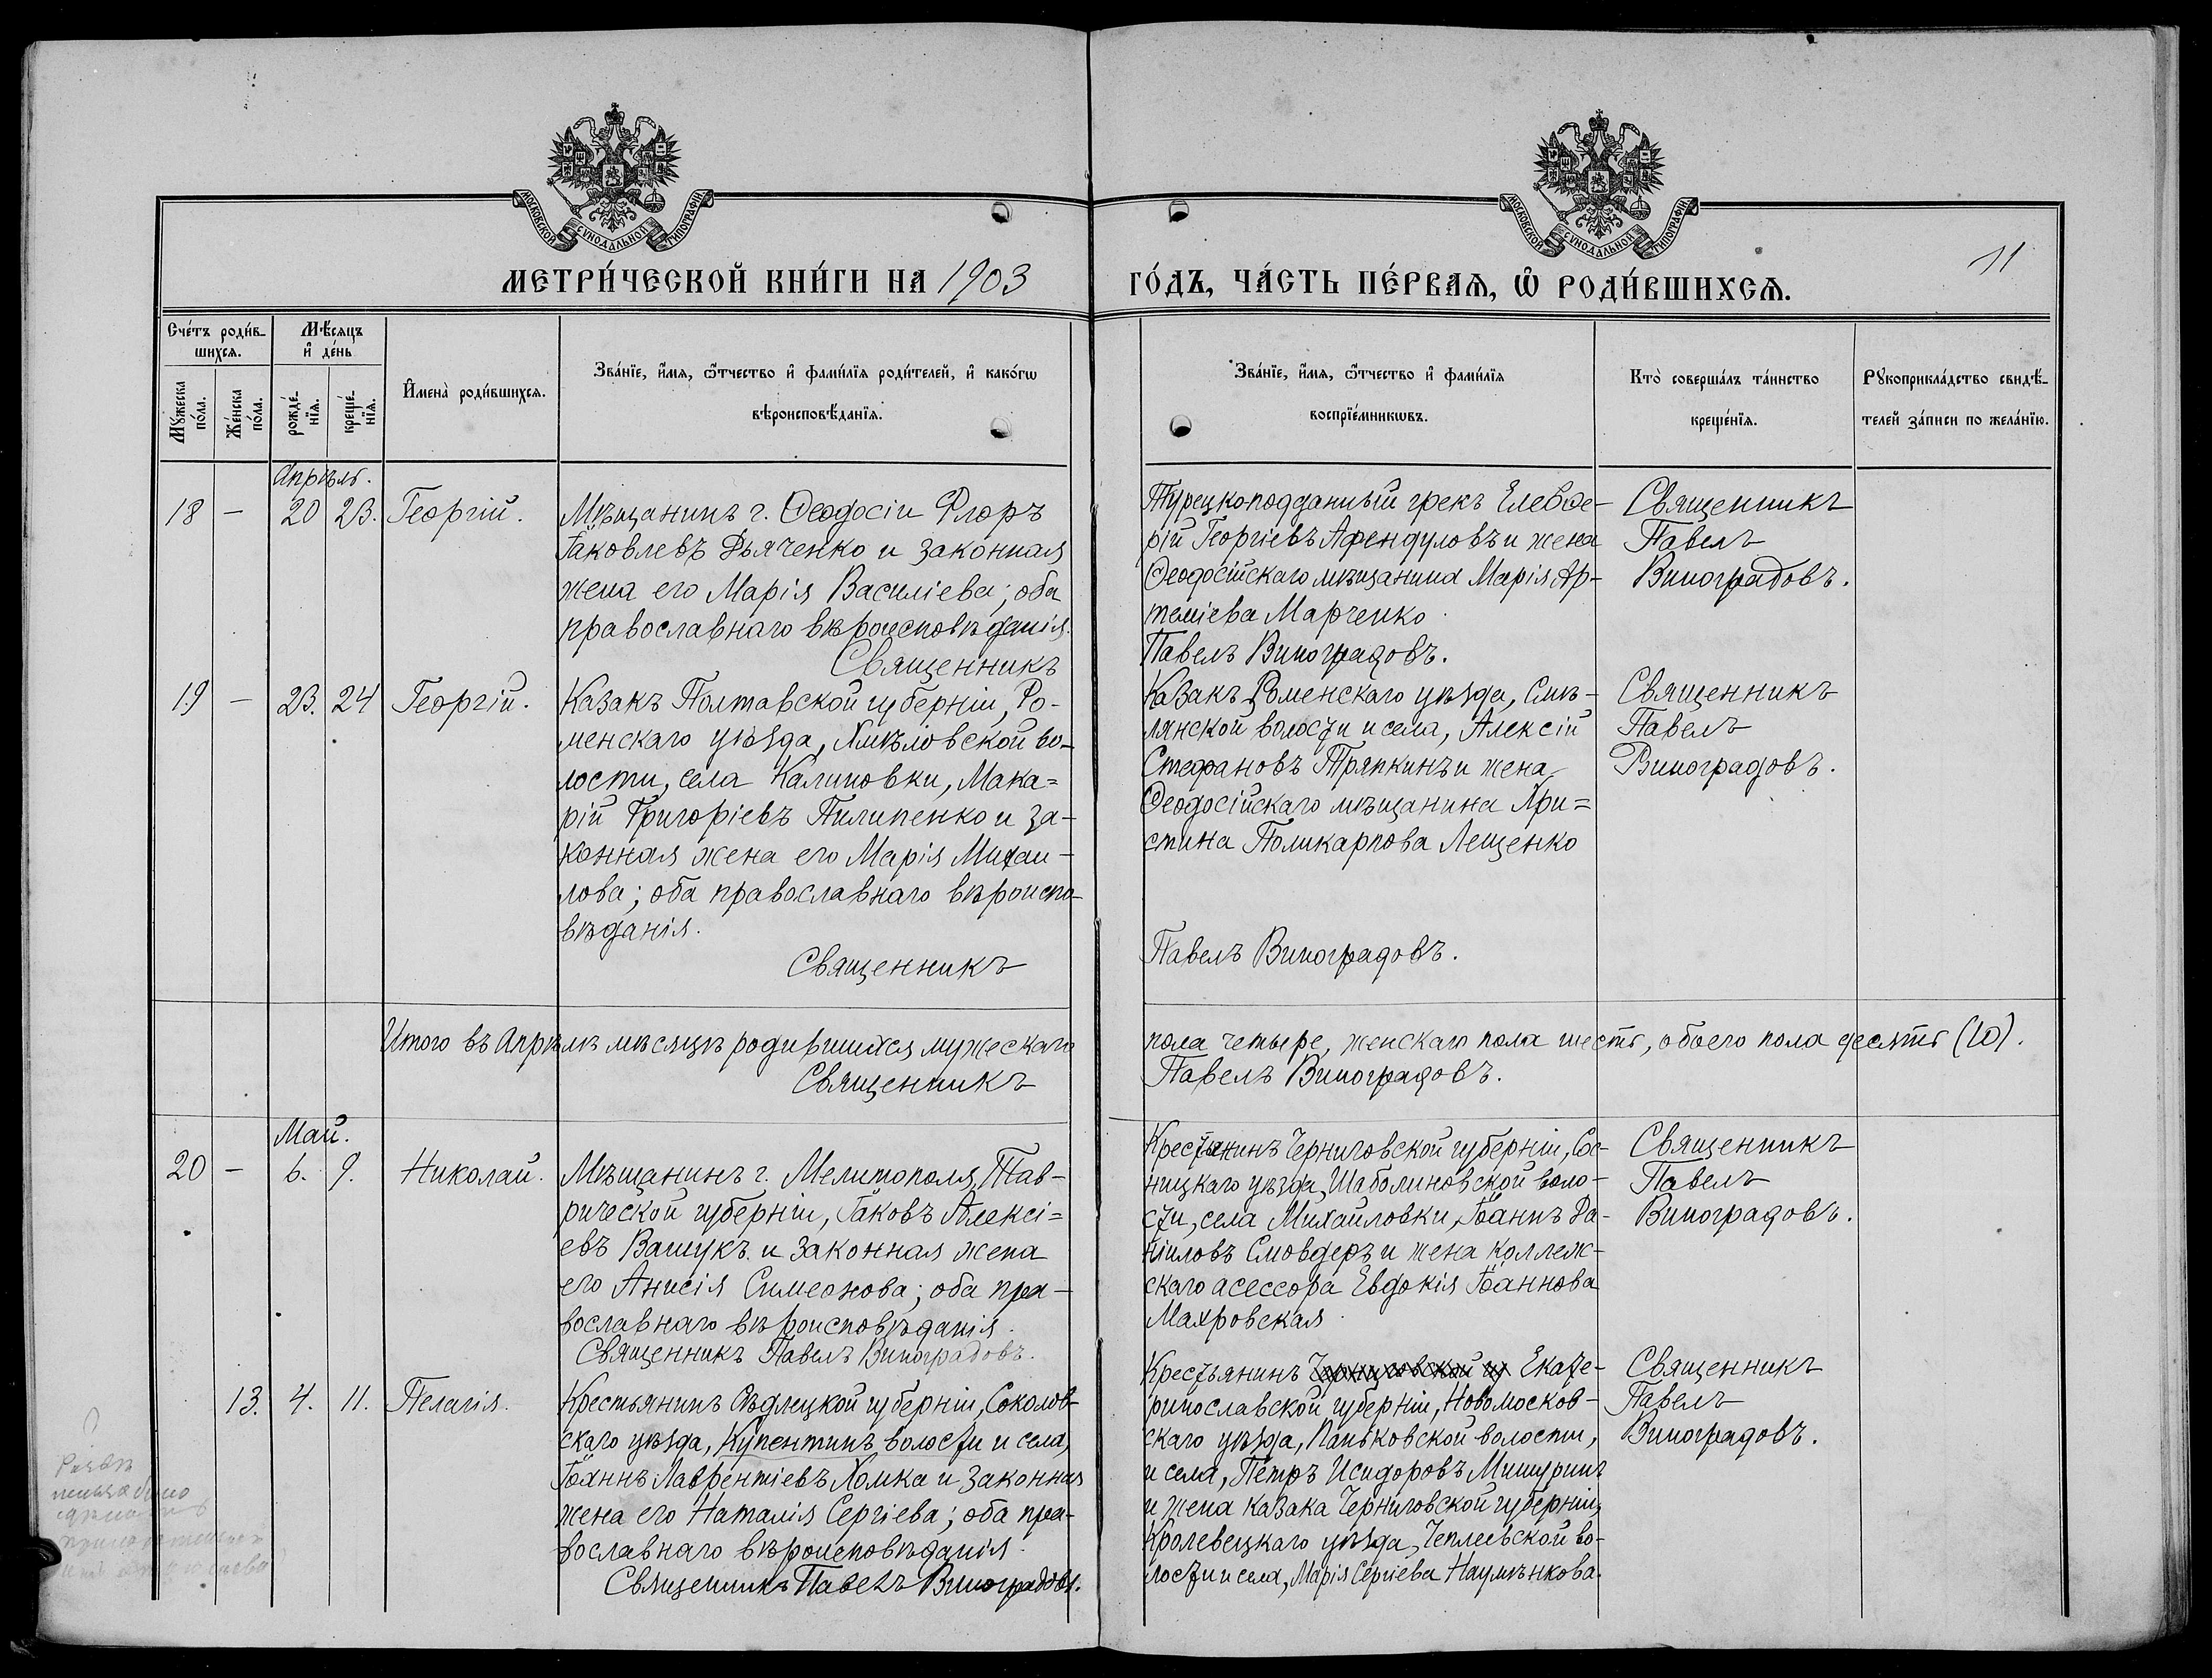 МОСКОВСКОЙ СѴНОДАЛЬНОЙ ТИПОГРАФІИ
МОСКОВСКОЙ СѴНОДАЛЬНОЙ ТИПОГРАФІИ
МЕТРИ́ЧЕСКОЙ КНИ́ГИ НА 1903
ГО́ДЪ, ЧА́СТЬ ПЕ́РВАѦ, Ѡ҆ РОДИ́ВШИХСѦ.
11
Сче́тъ роди́в-
шихсѧ.
Мѣ́сяцъ
и҆ де́нь
Мꙋ́жеска
по́ла.
Же́нска
по́ла.
рожде́-
нїѧ.
креще́-
нїѧ.
И҆мена̀ роди́вшихсѧ.
Зва́нїе, и҆́мѧ, ѻ҆́тчество и҆ фами́лїѧ роди́телей, и҆ како́гѡ
вѣроисповѣ́данїѧ.
Зва́нїе, и҆́мѧ, ѻ҆́тчество и҆ фами́лїѧ
воспрїе́мникѡвъ.
Кто̀ соверша́лъ та́инство
креще́нїѧ.
Рꙋкоприкла́дство свидѣ́-
телей за́писи по жела́нїю.
Апрѣль.
18 – 20 23. Георгій.
Мѣщанинъ г. Ѳеодосіи Флоръ
Іаковлевъ Дьяченко и законная
жена его Марія Василіева; оба
православнаго вѣроисповѣданія.
Священникъ
Турецкоподданный грекъ Елевѳе-
рій Георгіевъ Афендуловъ и жена
Ѳеодосійскаго мѣщанина Марія Ар-
теміева Марченко
Павелъ Виноградовъ.
Священникъ
Павелъ
Виноградовъ.
19 – 23. 24 Георгій.
Казакъ Полтавской губерніи, Ро-
менскаго уѣзда, Хмѣловской во-
лости, села Калиновки, Мака=
рій Григоріевъ Пилипенко и за-
конная жена его Марія Михаи-
лова; оба православнаго вѣроиспо-
вѣданія.
Священникъ
Казакъ Роменскаго уѣзда, Смѣ-
лянской волости и села, Алексій
Стефановъ Тряпкинъ и жена
Ѳеодосійскаго мѣщанина Хри=
стина Поликарпова Лещенко
Павелъ Виноградовъ.
Священникъ
Павелъ
Виноградовъ.
Итого въ Апрѣлѣ мѣсяцѣ родившихся мужескаго
пола четыре, женскаго пола шесть, обоего пола десять (10).
Священникъ
Павелъ Виноградовъ.
Май.
20 – 6. 9. Николай.
Мѣщанинъ г. Мелитополя, Тав-
рической губерніи, Іаковъ Алексі=
евъ Вашукъ и законная жена
его Анисія Симеонова; оба пра-
вославнаго вѣроисповѣданія.
Священникъ Павелъ Виноградовъ.
Крестьянинъ Черниговской губерніи, Сос-
ницкаго уѣзда, Шаболиновской воло-
сти, села Михайловки, Іоаннъ Да-
ніиловъ Смовдеръ и жена коллеж-
скаго асессора Евдокія Іоаннова
Махровская.
Священникъ
Павелъ
Виноградовъ.
13. 4. 11. Пелагія.
Крестьянинъ Сѣдлецкой губерніи, Соколов-
скаго уѣзда, Купентинъ волости и села,
Іоаннъ Лаврентіевъ Хомка и законная
жена его Наталія Сергіева; оба пра-
вославнаго вѣроисповѣданія.
Священникъ Павелъ Виноградовъ.
Крестьянинъ Черниговской гу Екате-
ринославской губерніи, Новомосков-
скаго уѣзда, Паньковской волости,
и села, Петръ Исидоровъ Мишуринъ
и жена казака Черниговской губерніи,
Кролевецкаго уѣзда, Чеплеевской во-
лости и села, Марія Сергіева Наумѣнкова.
Священникъ
Павелъ
Виноградовъ.